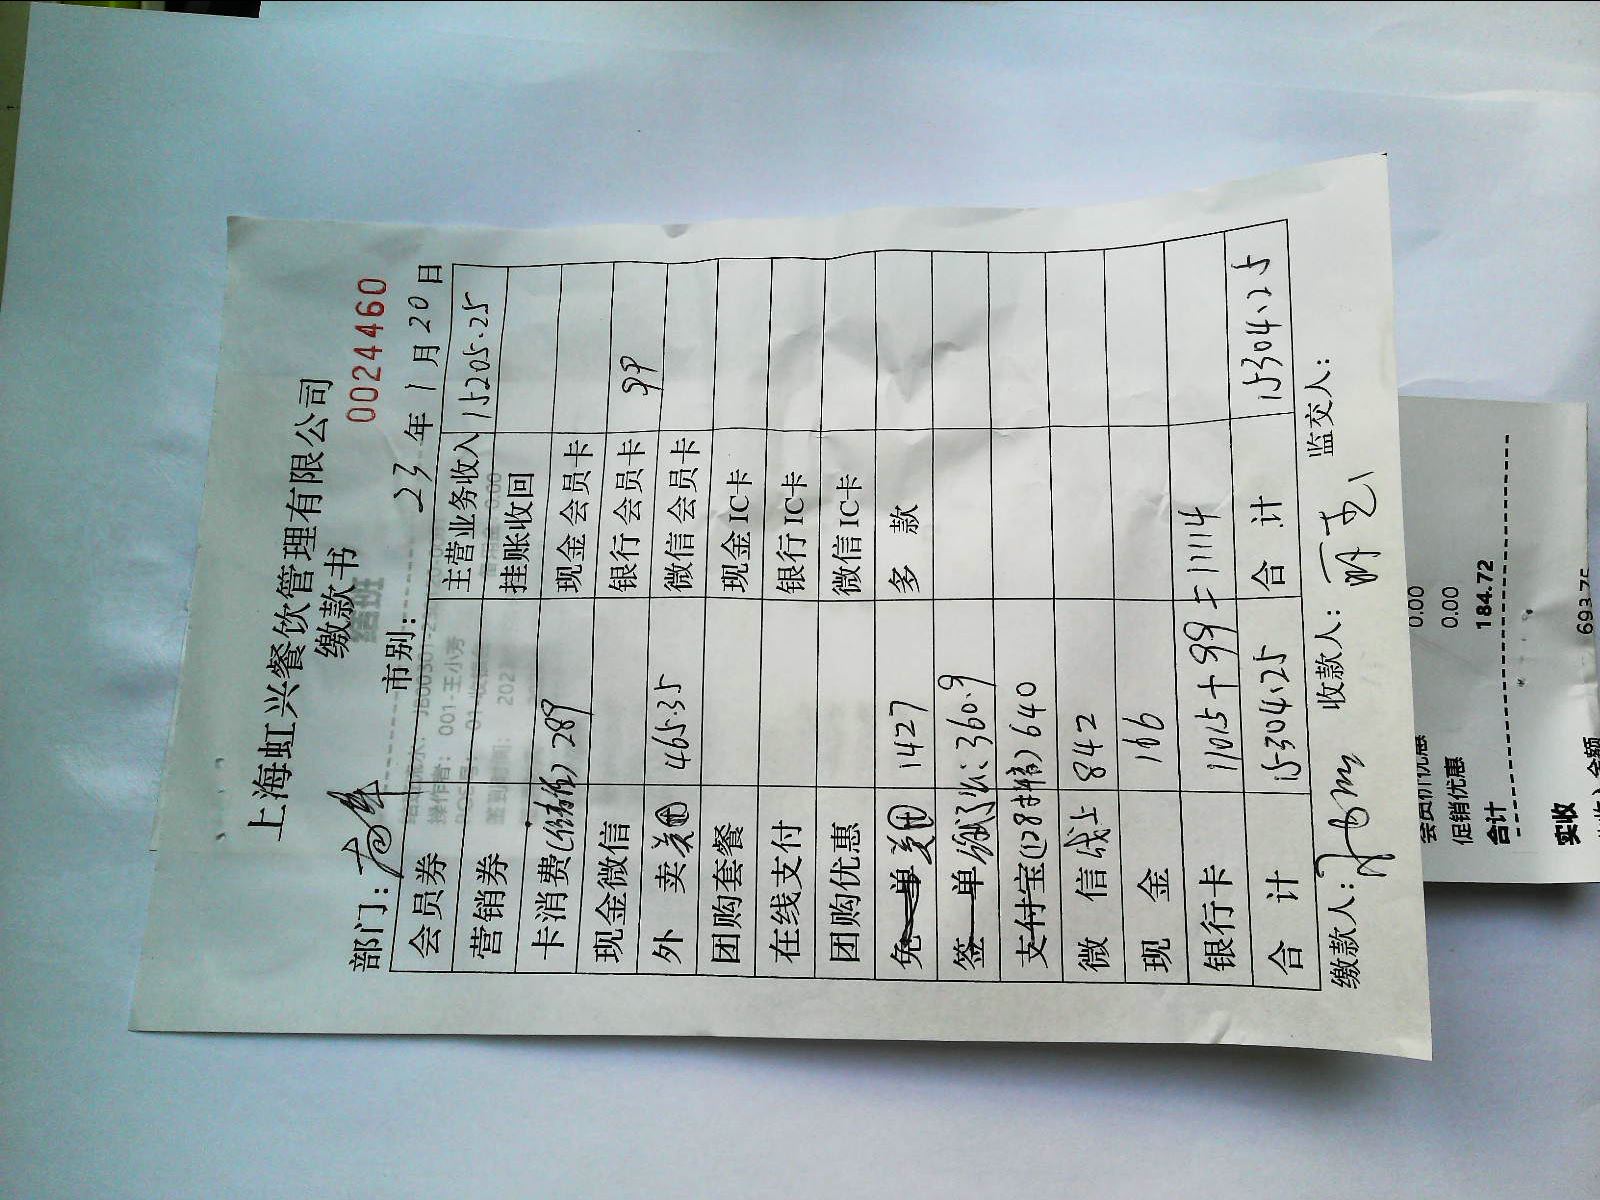 上海虹兴餐饮管理有限公司
缴款书
0024460
部门：
市别：
23年1月20日
会员券 主营业务收入 15205.25
营销券 挂账收回
卡消费 289 现金会员卡
现金微信 银行会员卡 99
外卖美团 465.35 微信会员卡
团购套餐 现金IC卡
在线支付 银行IC卡
团购优惠 微信IC卡
免单美团 1427 多款
签单 360.9
支付宝 640
微信线上 842
现金 166
银行卡 11015+99=11114
合计 15304.25 合计 15304.25
缴款人：
收款人：
监交人：
操作者： 001-王小秀
0.00
会员价优惠
0.00
促销优惠
184.72
合计
693.75
实收